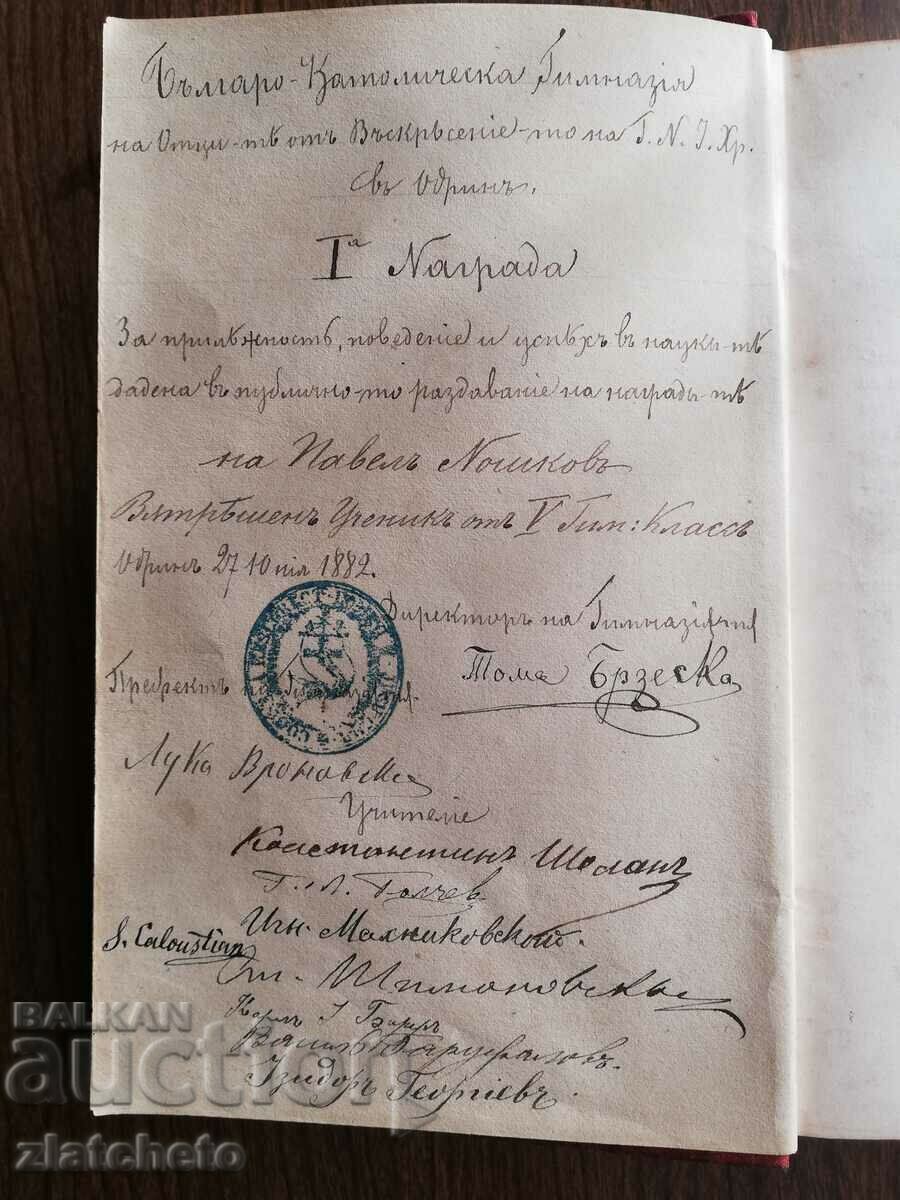 Българо-Католическа Гимназія
на Отци-тѣ отъ Въскрѣсеніе-то на Г. N. І. Хр.
въ Одринъ.
Iа Награда
За прилѣжность, поведеніе и успѣхъ въ науки-тѣ
дадена въ публично-то раздаваніе на награды-тѣ
на Павелъ Ношковъ
Вѫтрѣшенъ Ученикъ отъ V Гим: Классъ
Одринъ 27 Юлія 1882.
Директоръ на Гимназія-тѫ
Тома Брзеска
Префектъ на
Лука Вроновски
Учителіе
Константинъ
Г. Л. Болчев
Игн. Малниковской.
S. Caloustian
Шимоновскы
Карлъ І
Василъ
Ізидоръ Георгіевъ.
BALKAN
auction
zlatcheto